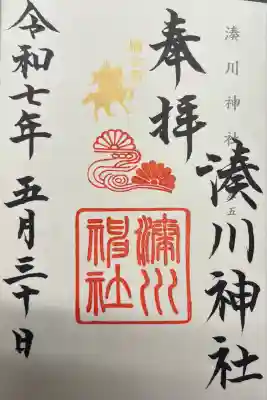 奉拝
湊川神社
湊川神社
令和七年 五月三十日